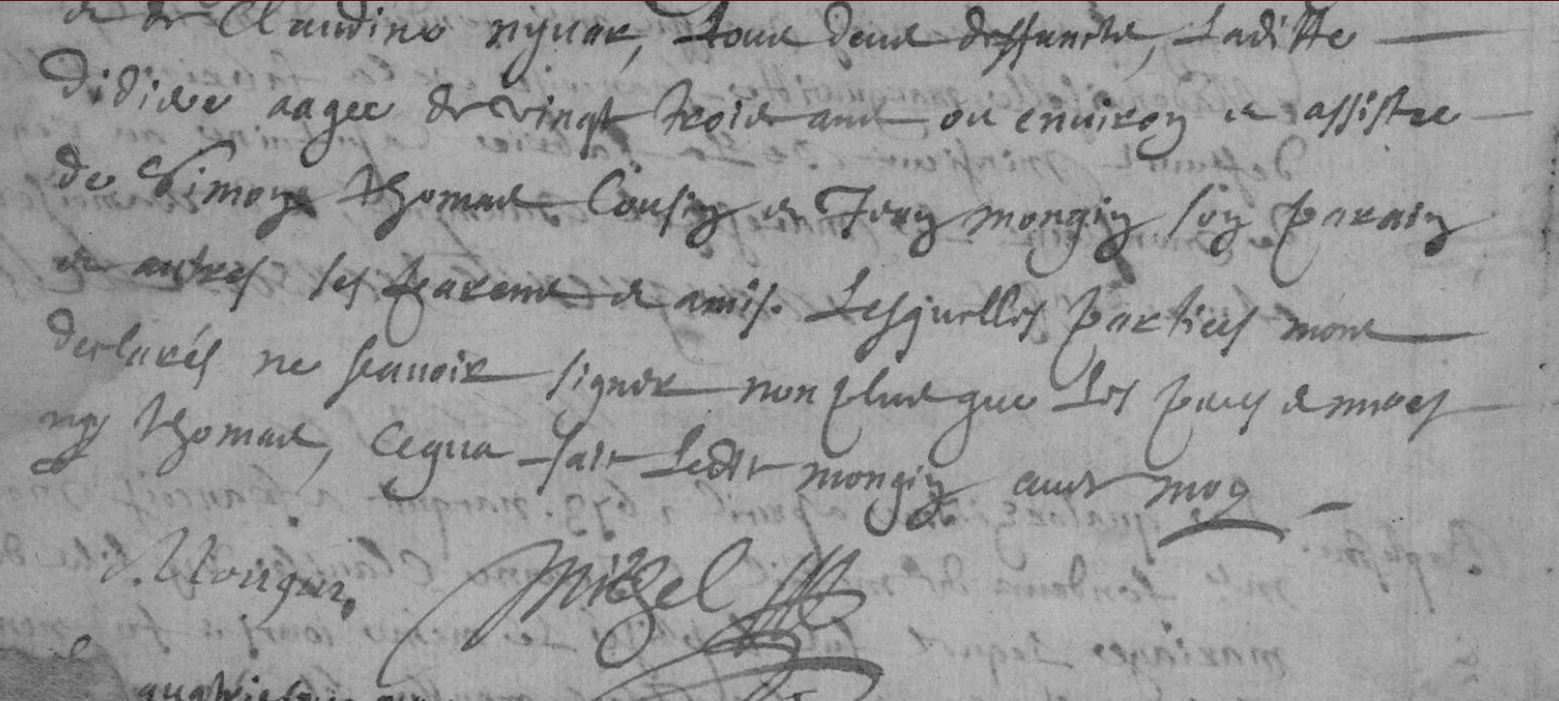 et de Claudine nynar, tous deux deffuncts, Laditte
didiere aagee de vingt trois ans ou environ et assistee
de Simon thomas Cousin et Jean mongin son parain
et autres ses parens et amis. Lesquelles parties mont
declarés ne scavoir signer non plus que les peres et meres
ny thomas, ce qua fait Ledit mongin avec moy
J. Mongin
Michel